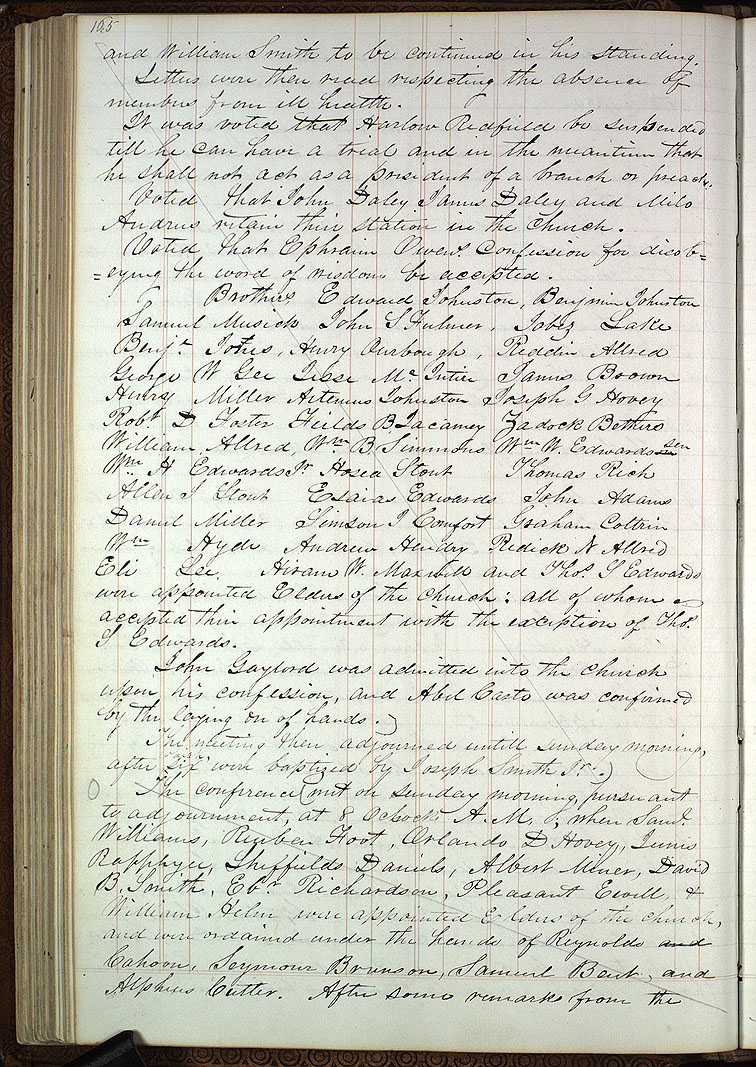 105
and William Smith to be continued in his standing.
Letters were then read respecting the absence of
members from ill health.
It was voted that Harlow Redfield be suspended
till he can have a trial and in the meantime that
he shall not act as a president of a branch or preach.
Voted that John Daley James Daley and Milo
Andrus retain their station in the Church.
Voted that Ephraim Owens. Confession for disob=
=eying the word of wisdom be accepted.
Brothers Edward Johnston, Benjamin Johnston
Samuel Musick John S Fulmer, Jabez Lake
Benjn. Jones, Henry Ourbough, Reddin Allred
George W Gee Jesse Mc Intier James Brown
Henry Miller Artemus Johnston Joseph G Hovey
Robt D Foster Fields B Jacaway Zadock Bethers
William Allred, Wm B Simmons Wm W. Edwards sen
Wm. H Edwards Jr Hosea Stout Thomas Rich
Allen J Stout Esaias Edwards John Adams
Daniel Miller Simson J Comfort Graham Coltrin
Wm Hyde Andrew Hendry Redick N Allred
Eli Lee. Hiram W. Maxwell and Thos. S Edwards
were appointed Elders of the Church: all of whom
accepted their appointment with the exception of Thos.
S Edwards.
John Gaylord was admitted into the Church
upon his confession, and Abel Casto was confirmed
by the laying on of hands.)
The meeting then adjourned untill sunday morning,
after were baptized by Joseph Smith Jr.)
The conference (met on sunday morning, pursuant
to adjournment, at 8 Oclock A.M, when Saml.
Williams, Reuben Foot, Orlando D Hovey,
Rapphyee, Sheffields Daniels, Albert Miner, David
B. Smith, Ebr. Richardson, Pleasant Ewell, &
William Helm were appointed Elders of the church,
and were ordained under the hands of Reynolds and
Cahoon, Seymour Brunson, Samuel Bent, and
Alpheus Cutler. After some remarks from the